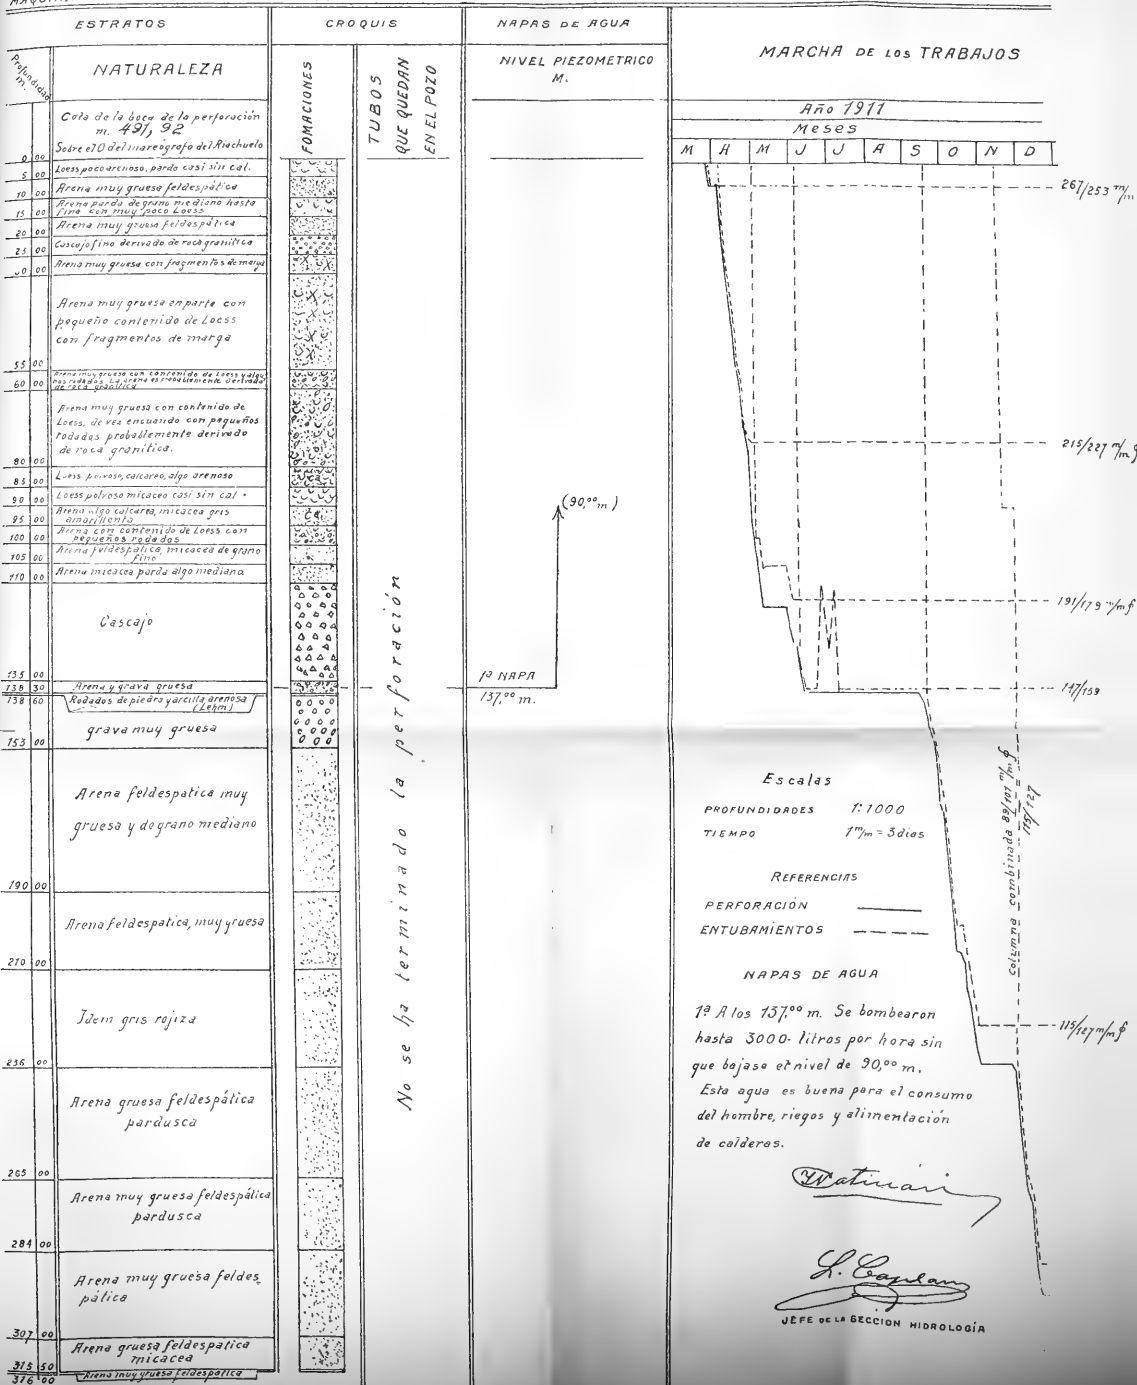 ESTRATOS
CROQUIS
NAPAS DE AGUA
MARCHA DE LOS TRABAJOS
Profundidad m.
NATURALEZA
FOMACIONES
TUBOS
QUE QUEDAN
EN EL POZO
NIVEL PIEZOMETRICO
M.
Año 1911
Meses
M A M J J A S O N D
Cota de la boca de la perforación
m. 491,92
Sobre el 0 del mareógrafo del Riachuelo
0 00
Loess poco arenoso, pardo casi sin cal.
5 00
Arena muy gruesa feldespática
10 00
Arena parda de grano mediano hasta
fino con muy poco Loess
15 00
Arena muy gruesa feldespática
20 00
Cascajo fino derivado de roca granítica
25 00
Arena muy gruesa con fragmentos de marga
30 00
Arena muy gruesa en parte con
pequeño contenido de Loess
con fragmentos de marga
55 00
Arena muy gruesa con contenido de Loess y algu
nos rodados. La arena es probablemente derivada
de roca granítica
60 00
Arena muy gruesa con contenido de
Loess, de vez encuando con pequeños
rodados probablemente derivado
de roca granítica.
80 00
Loess polvoso, calcareo, algo arenoso
85 00
Loess polvoso micaceo casi sin cal.
90 00
Arena algo calcarea, micacea gris
amarillenta
95 00
Arena con contenido de Loess con
pequeños rodados
100 00
Arena feldespática, micacea de grano
fino
105 00
Arena micacea parda algo mediana
110 00
Cascajo
135 00
Arena y grava gruesa
138 30
Rodados de piedra y arcilla arenosa
(Lehm)
138 60
grava muy gruesa
153 00
Arena feldespatica muy
gruesa y de grano mediano
190 00
Arena feldespatica, muy gruesa
210 00
Idem gris rojiza
236 00
Arena gruesa feldespática
pardusca
265 00
Arena muy gruesa feldespática
pardusca
284 00
Arena muy gruesa feldes
pática
307 00
Arena gruesa feldespatica
micacea
315 50
Arena muy gruesa feldespatica
316 00
No se ha terminado la perforación
(90,00 m)
1ª NAPA
137,00 m.
267/253 m/m
215/227 m/m ϕ
191/179 m/m ϕ
147/159
115/127 m/m ϕ
Columna combinada 89/101 m/m ϕ
115/127
Escalas
PROFUNDIDADES 1:1000
TIEMPO 1 m/m = 3 dias
REFERENCIAS
PERFORACIÓN
ENTUBAMIENTOS
NAPAS DE AGUA
1ª A los 137,00 m. Se bombearon
hasta 3000- litros por hora sin
que bajase el nivel de 90,00 m.
Esta agua es buena para el consumo
del hombre, riegos y alimentación
de calderas.
JEFE DE LA SECCION HIDROLOGÍA